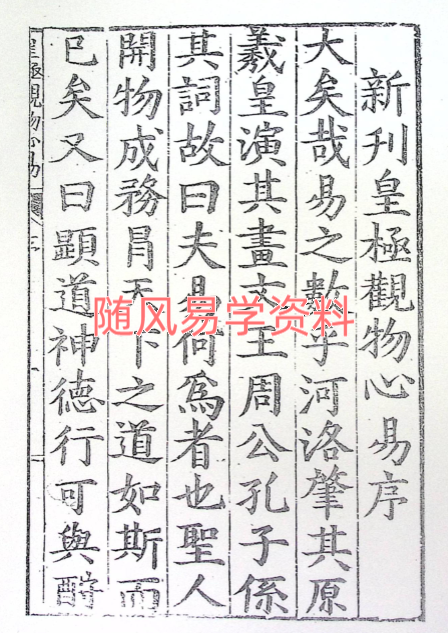 新刋皇極觀物心易序
大矣哉易之數乎河洛肇其原
羲皇演其畫文王周公孔子係
其詞故曰夫易何爲者也聖人
開物成務冐天下之道如斯而
已矣又曰顯道神德行可與酧
皇極觀物心易
随风易学资料